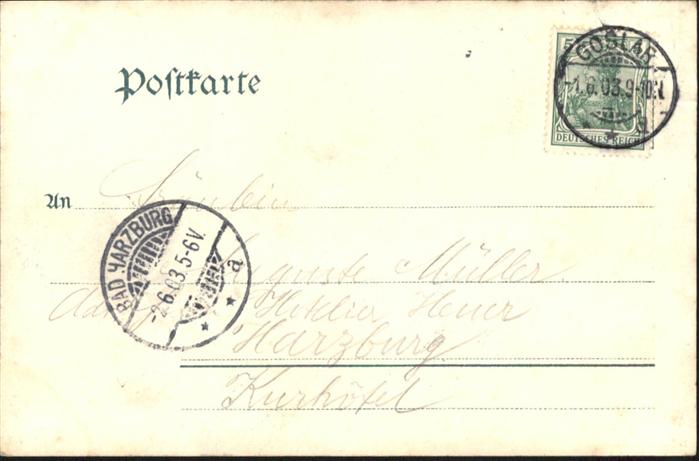 Postkarte
5
GOSLAR
-1.6.03.9-10.V.
* * a
DEUTSCHES REICH
An
Fräulein
BAD HARZBURG
-2.6.03.5-6V.
* * a
Auguste Müller
Harzburg
Kurhôtel